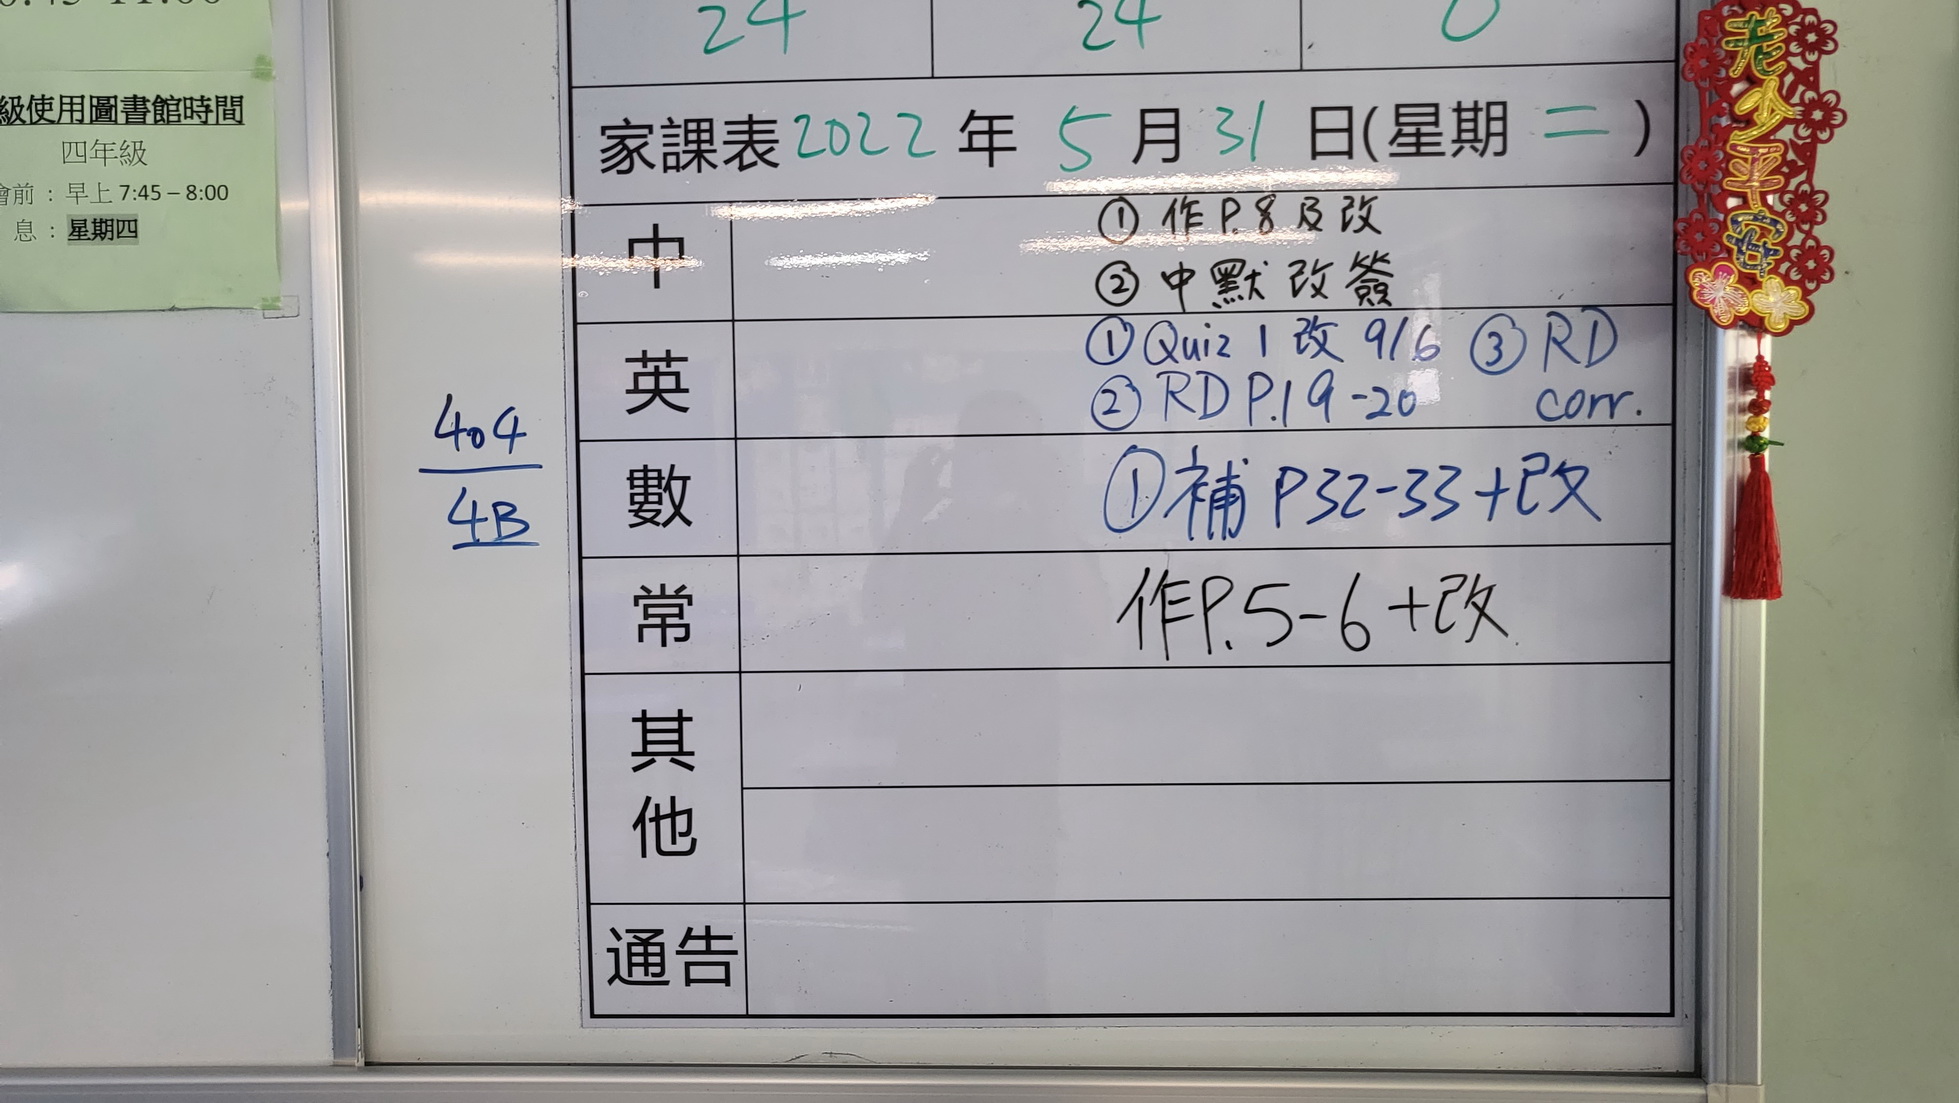 級使用圖書館時間
四年級
會前：早上 7:45 – 8:00
息：星期四
24 24 0
家課表 2022 年 5 月 31 日(星期 二 )
中
① 作 P.8 及改
② 中默改簽
英
① Quiz 1 改 9/6 ③ RD
② RD P.19-20 corr.
404
4B
數
① 補 P32-33+改
常
作P.5-6+改
其他
通告
老少平安